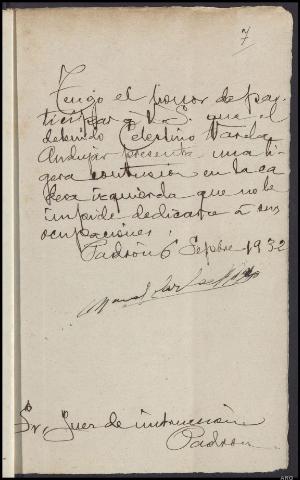 7
Tengo el honor de par-
ticipar á V. S. que el
detenido Celestino Varela
Andujar presenta una li-
gera contusion en la ca-
dera izquierda que no le
impide dedicarse á sus
ocupaciones.
Padrón 6 Sepbre 1932
Sr. Juez de instrucción
Padron